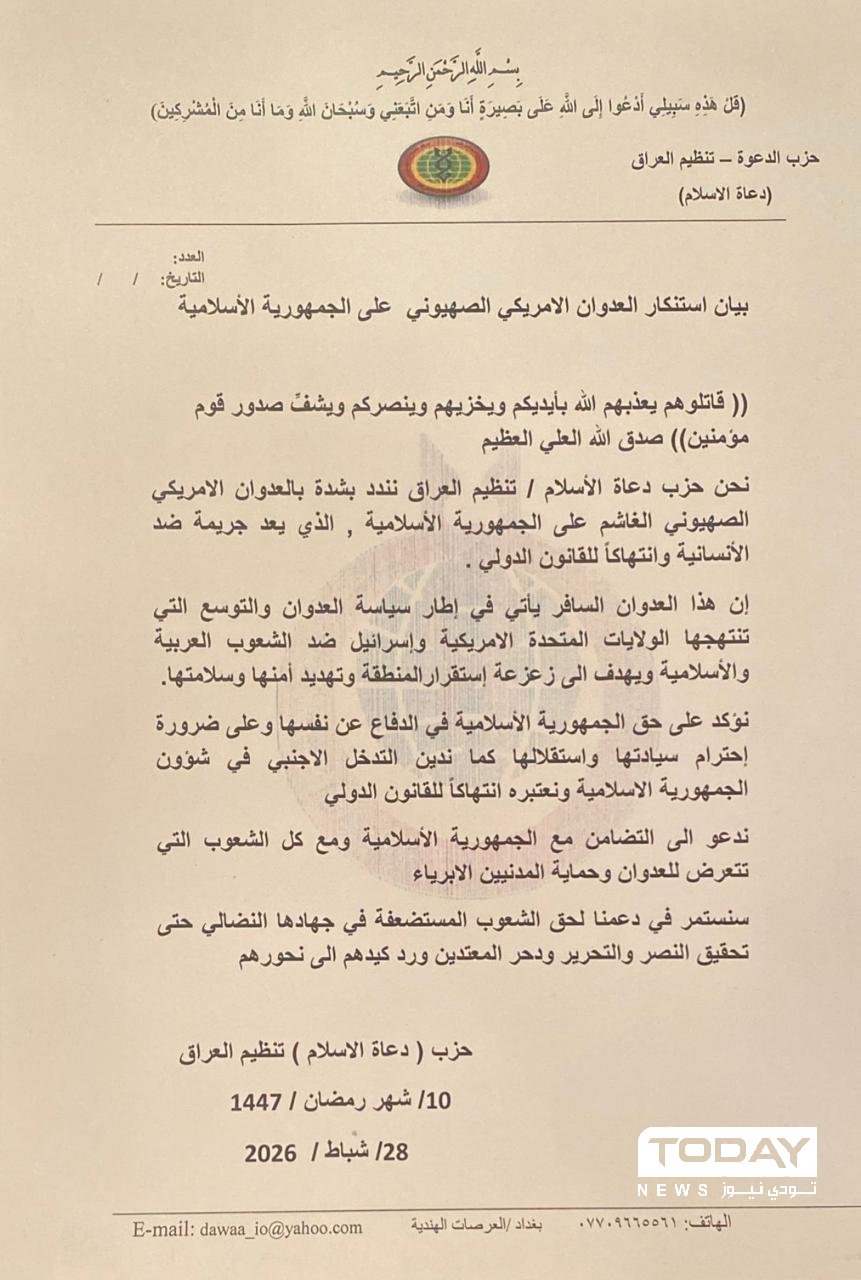 بِسْمِ اللَّهِ الرَّحْمَنِ الرَّحِيمِ
(قُلْ هَذِهِ سَبِيلِي أَدْعُوا إِلَى اللَّهِ عَلَى بَصِيرَةٍ أَنَا وَمَنِ اتَّبَعَنِي وَسُبْحَانَ اللَّهِ وَمَا أَنَا مِنَ الْمُشْرِكِينَ)
حزب الدعوة – تنظيم العراق
(دعاة الاسلام)
العدد:
التاريخ: / /
بيان استنكار العدوان الامريكي الصهيوني على الجمهورية الأسلامية
(( قاتلوهم يعذبهم الله بأيديكم ويخزيهم وينصركم ويشفِّ صدور قوم
مؤمنين)) صدق الله العلي العظيم
نحن حزب دعاة الأسلام / تنظيم العراق نندد بشدة بالعدوان الامريكي
الصهيوني الغاشم على الجمهورية الأسلامية , الذي يعد جريمة ضد
الأنسانية وانتهاكاً للقانون الدولي .
إن هذا العدوان السافر يأتي في إطار سياسة العدوان والتوسع التي
تنتهجها الولايات المتحدة الامريكية وإسرائيل ضد الشعوب العربية
والأسلامية ويهدف الى زعزعة إستقرارالمنطقة وتهديد أمنها وسلامتها.
نؤكد على حق الجمهورية الأسلامية في الدفاع عن نفسها وعلى ضرورة
إحترام سيادتها واستقلالها كما ندين التدخل الاجنبي في شؤون
الجمهورية الاسلامية ونعتبره انتهاكاً للقانون الدولي
ندعو الى التضامن مع الجمهورية الأسلامية ومع كل الشعوب التي
تتعرض للعدوان وحماية المدنيين الابرياء
سنستمر في دعمنا لحق الشعوب المستضعفة في جهادها النضالي حتى
تحقيق النصر والتحرير ودحر المعتدين ورد كيدهم الى نحورهم
حزب ( دعاة الاسلام ) تنظيم العراق
10/ شهر رمضان / 1447
28/ شباط / 2026
TODAY
NEWS تودي نيوز
الهاتف: ٠٧٧٠٩٦٦٥٥٦١ بغداد /العرصات الهندية E-mail: dawaa_io@yahoo.com